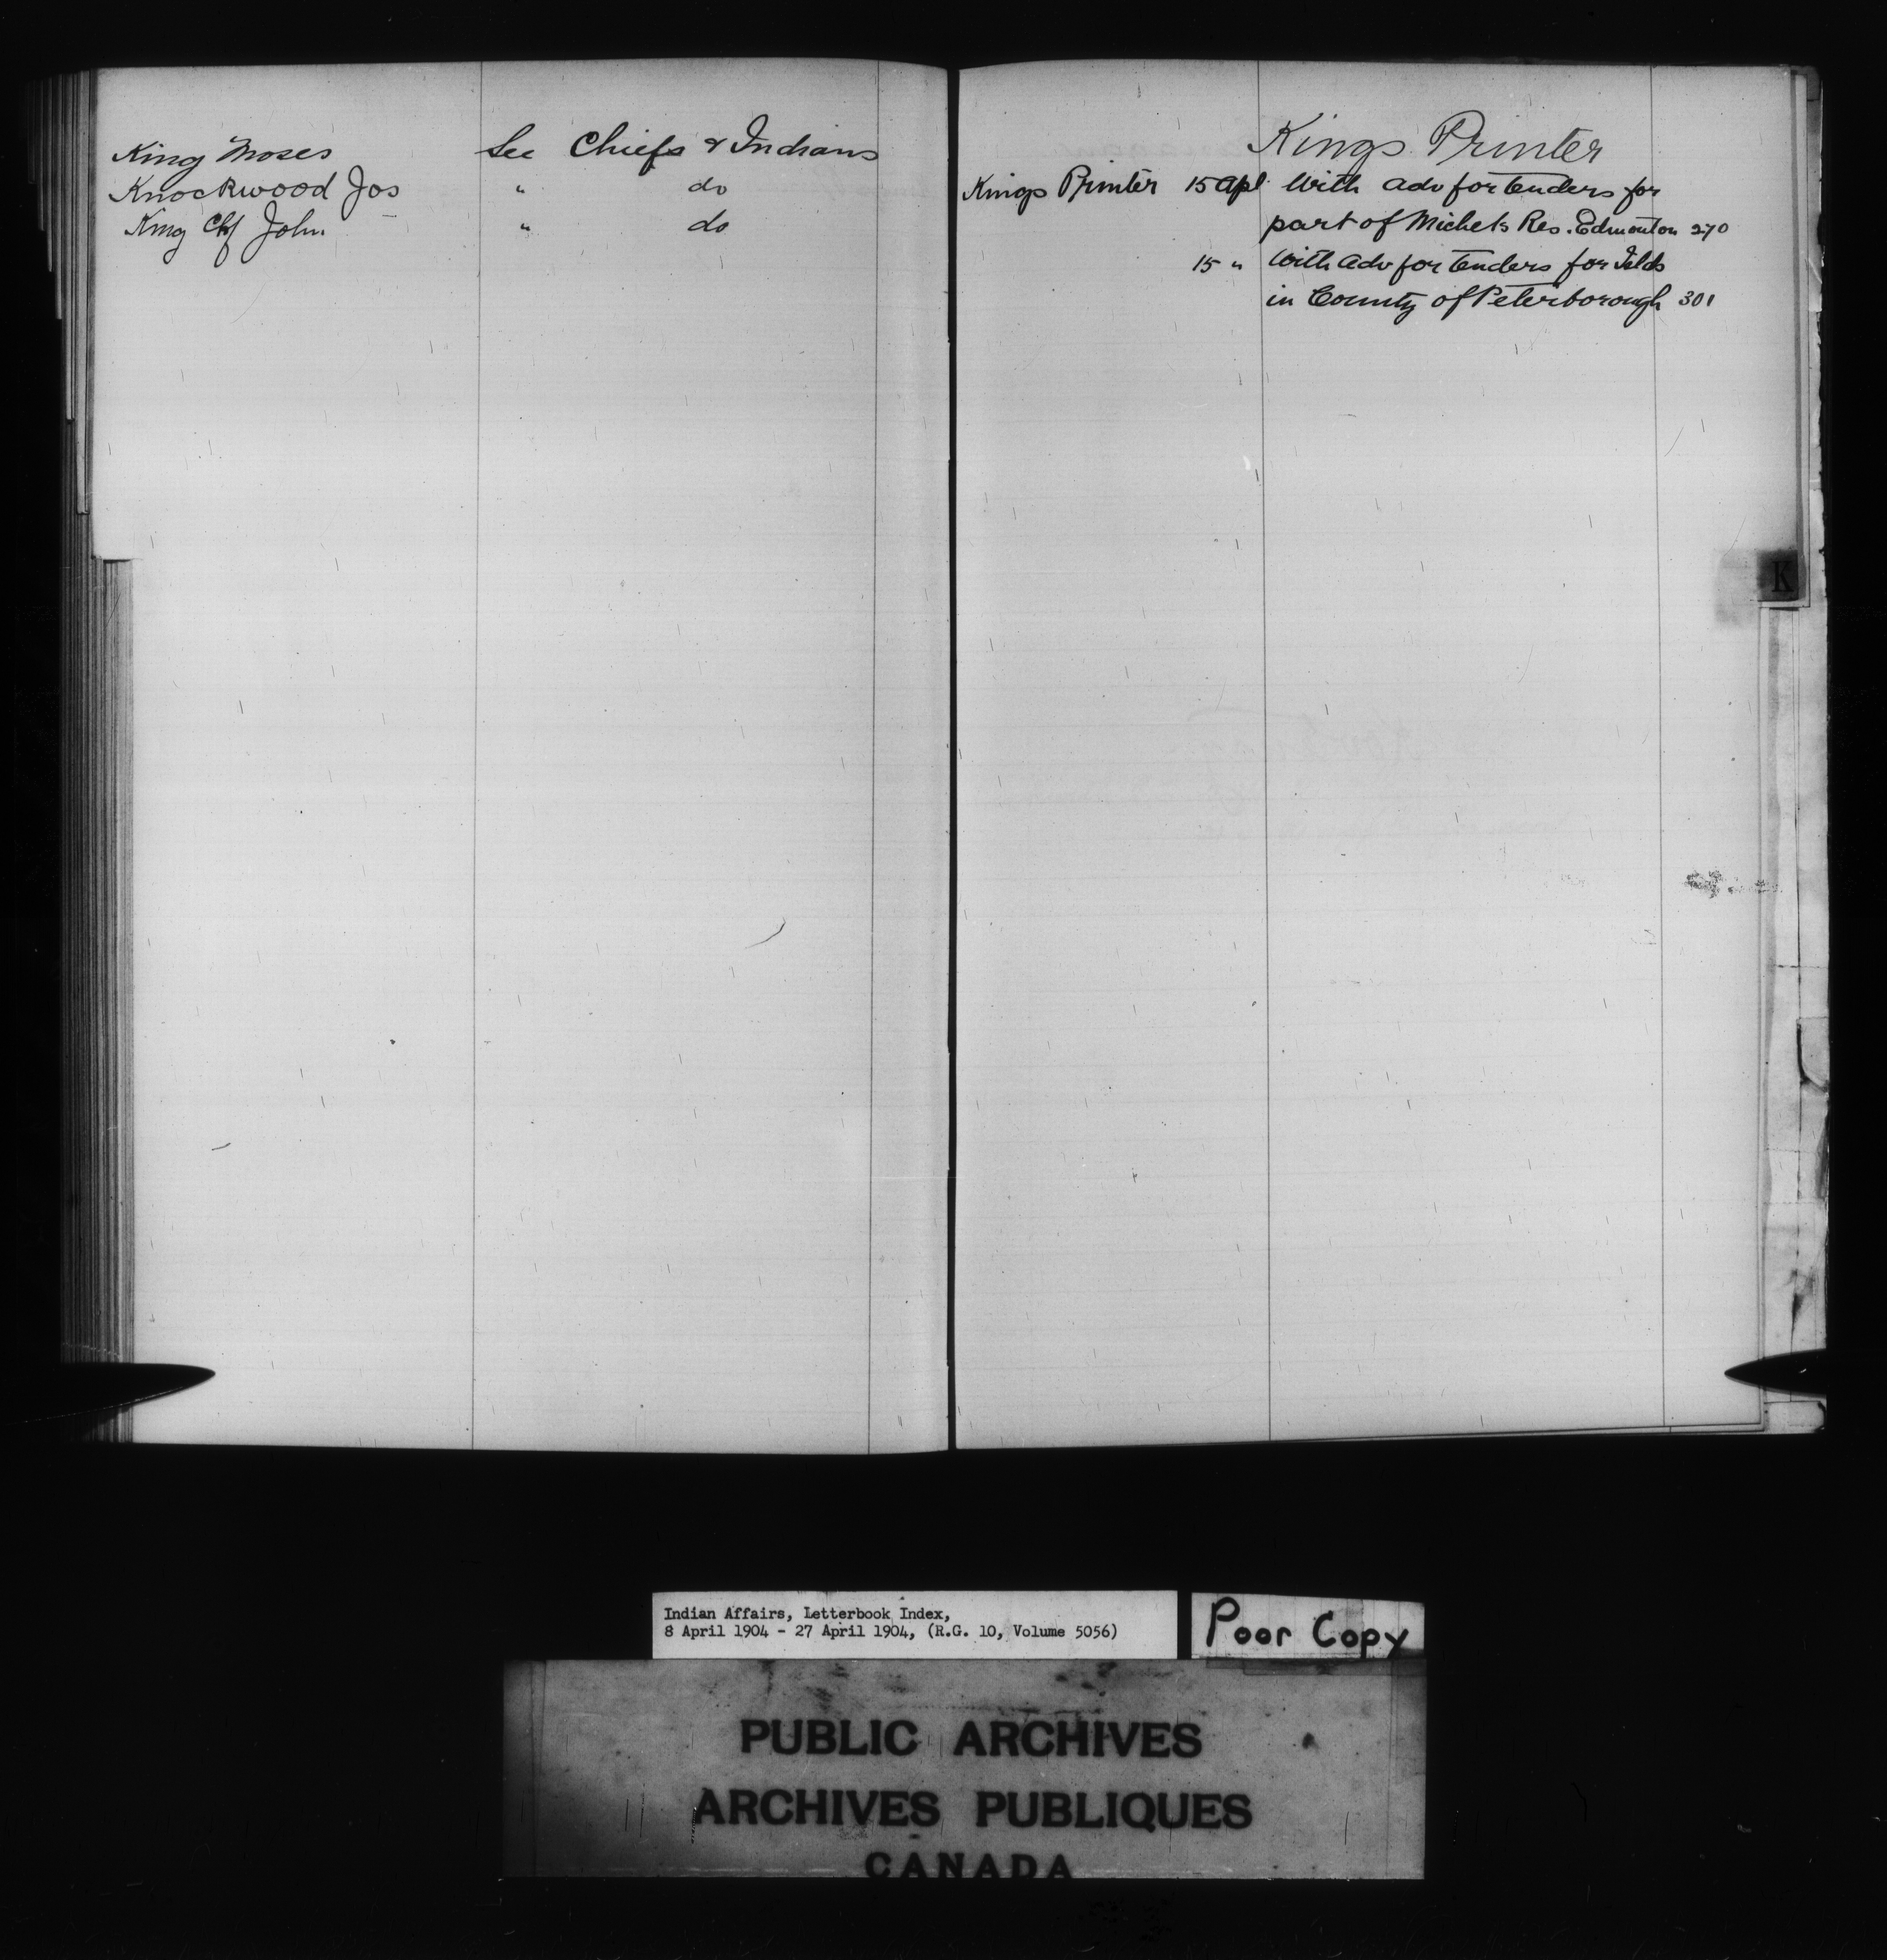 King Moses See Chiefs & Indians
Knockwood Jos " do
King Chf John " do
Kings Printer
Kings Printer 15 Apl. With adv for tenders for
part of Michels Res. Edmonton 270
15 " With adv for tenders for Islds
in County of Peterborough 301
K
Indian Affairs, Letterbook Index,
8 April 1904 - 27 April 1904, (R.G. 10, Volume 5056)
Poor Copy
PUBLIC ARCHIVES
ARCHIVES PUBLIQUES
CANADA